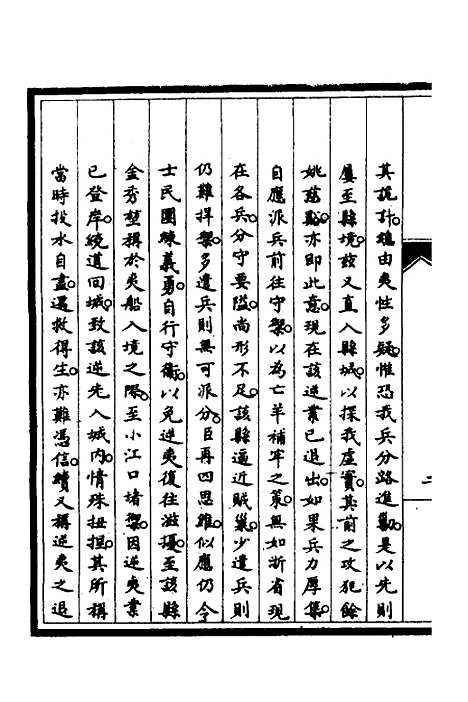 其詭計。總由夷性多疑。惟恐我兵分路進勦。是以先則
屢至縣境。該又直入縣城。以探我虛實。其前之攻犯餘
姚慈谿。亦即此意。現在該逆業已退出。如果兵力厚集。
自應派兵前往守禦。以為亡羊補牢之策。無如浙省現
在各兵。分守要隘。尚形不足。該縣逼近賊巢。少遣兵則
仍難捍禦。多遣兵則無可派分。臣再四思維。似應仍令
士民團練義勇。自行守衛。以免逆夷復往滋擾。至該縣
金秀堃稱於夷船入境之際。至小江口堵禦。因逆夷業
已登岸。繞道回城。致該逆先入城內。情殊扭捏。其所稱
當時投水自盡。遇救得生。亦難憑信。續又稱逆夷之退
二